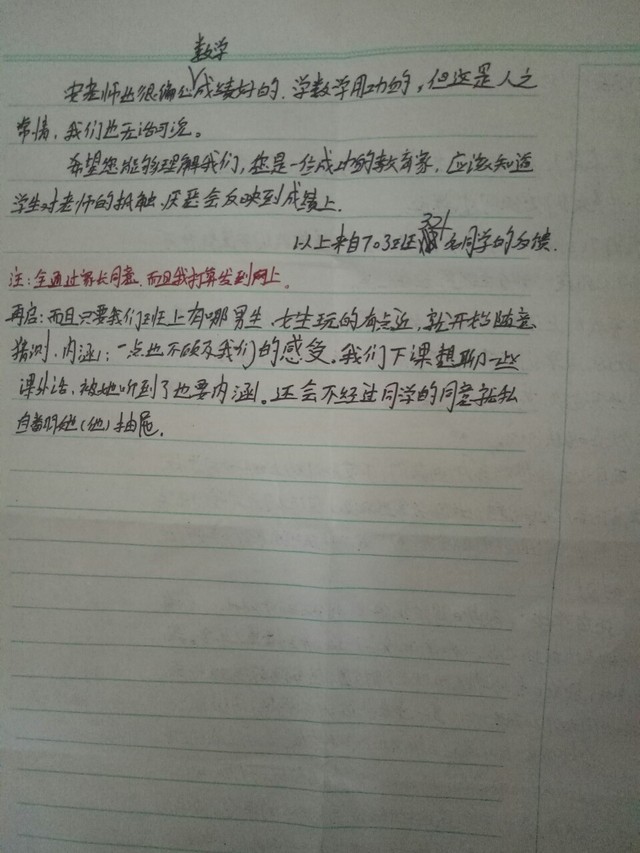 数学
安老师也很偏心成绩好的、学数学用功的，但这是人之
常情，我们也无话可说。
希望您能够理解我们，您是一位成功的教育家，应该知道
学生对老师的抵触、厌恶会反映到成绩上.
321
以上来自703班 名同学的反馈.
注：全通过家长同意，而且我打算发到网上。
再启：而且只要我们班上有哪男生、女生玩的有点近，就开始随意
猜测、内涵；一点也不顾及我们的感受。我们下课想聊一些
课外话，被她听到了也要内涵。还会不经过同学的同意就私
自翻她(他)抽屉.